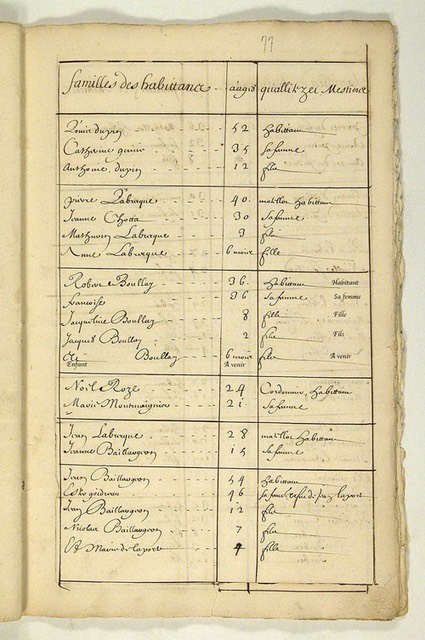 77
familles des habittance aages quallitez et Mestiers
dupin 52 habittan
Catherine 35 safemme
Anthoine dupin 12 fils
pierre Labrague 40 matellot habittan
Jeanne Chotta 30 safemme
Mathurin Labreque 3 fils
Anne Labreque 6 mois fille
Robert Boullay 36 habittan Habitant
francoise 36 safemme Sa femme
Jacqueline Boullay 8 fille Fille
Jacques Boullay 2 fils Fils
Boullay 6 mois fils A venir
Enfant A venir
Noël Roze 24 Cordonnier, habittan
Marie Montmaignier 21 safemme
Jean Labreque 28 matellot habittan
Jeanne Baillargeon 15 safemme
Jean Baillargeon 54 habittan
46 safemme de Jean laporte
Jean Baillargeon 12 fils
Nicolas Baillargeon 7 fils
Et Marie de laporte 4 fille